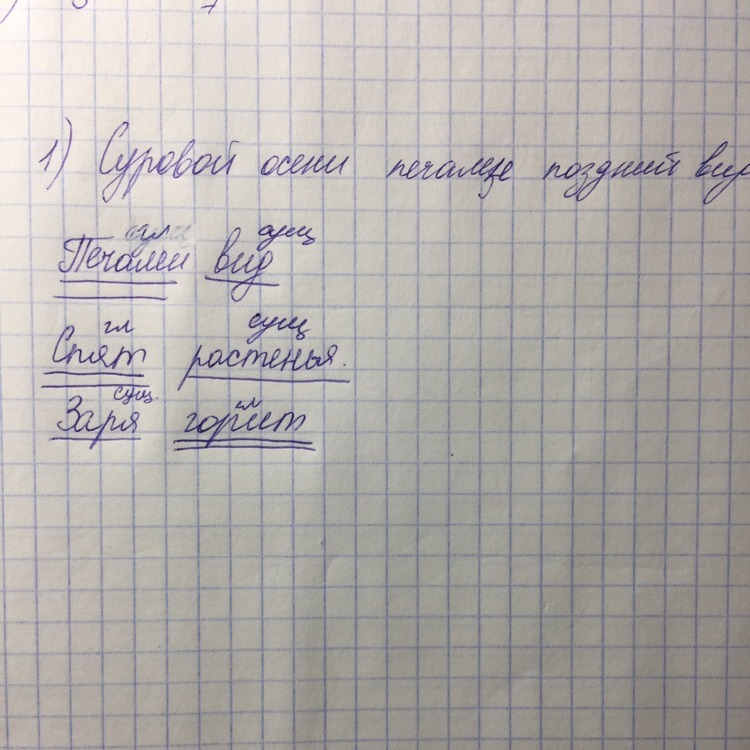 1) Суровой осени печален поздний вид
сущ
Печален вид
гл сущ
Спят растенья.
сущ. гл
Заря горит